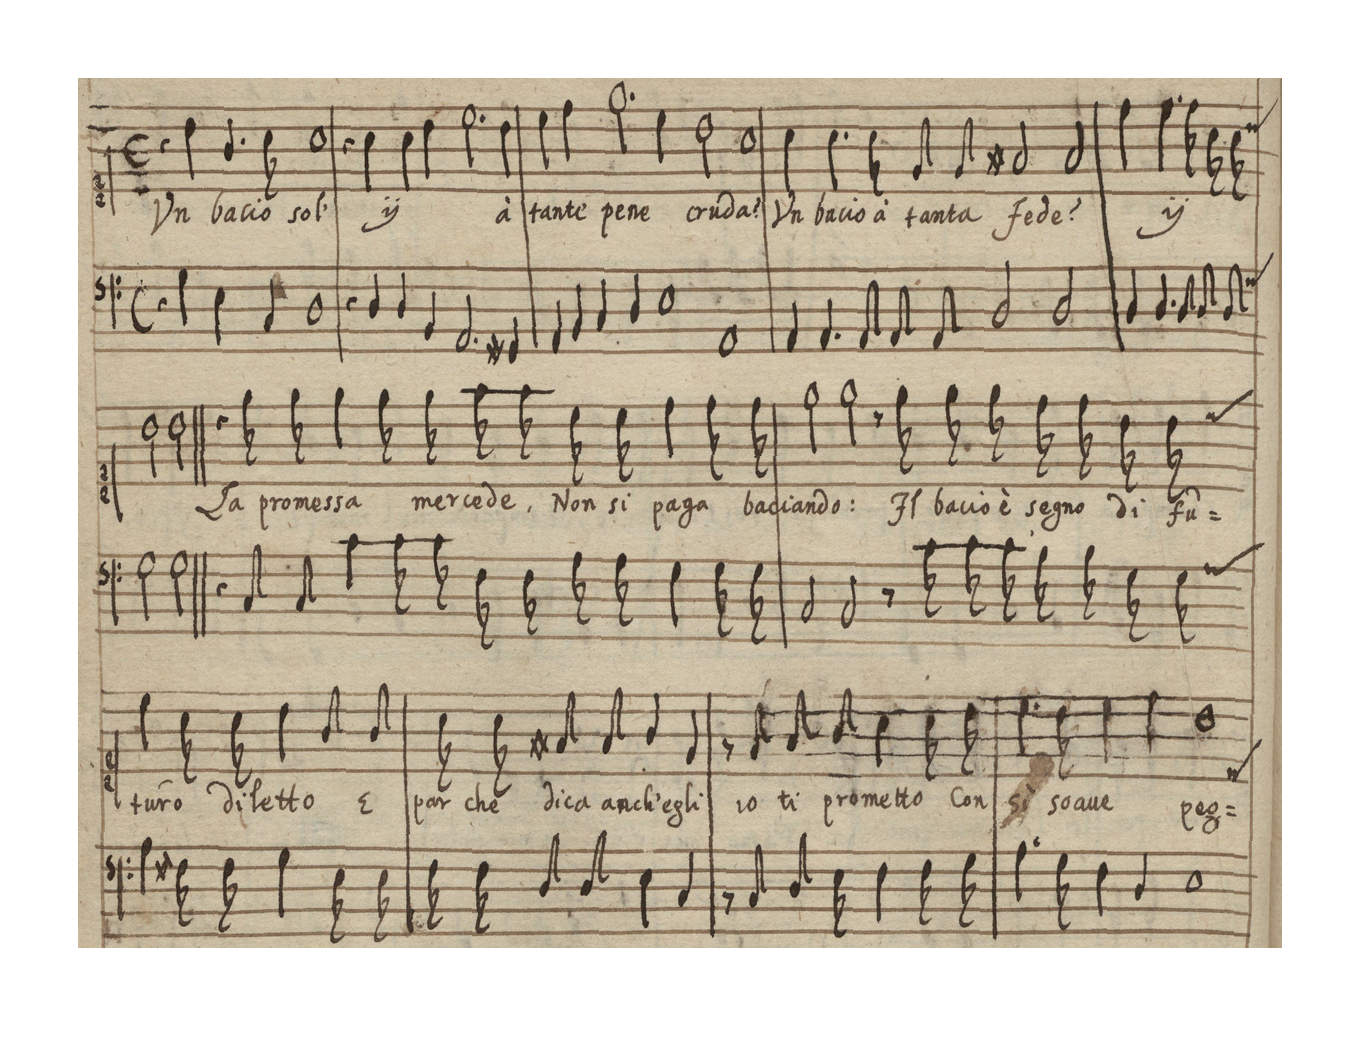 Vn bacio sol' ij à tante pene cruda? Vn bacio à tanta fede? ij
La promessa mercede, Non si paga baciando: Il bacio è segno di fu=
turo diletto E par che dica anch'egli io ti prometto Con sì soaue peg=